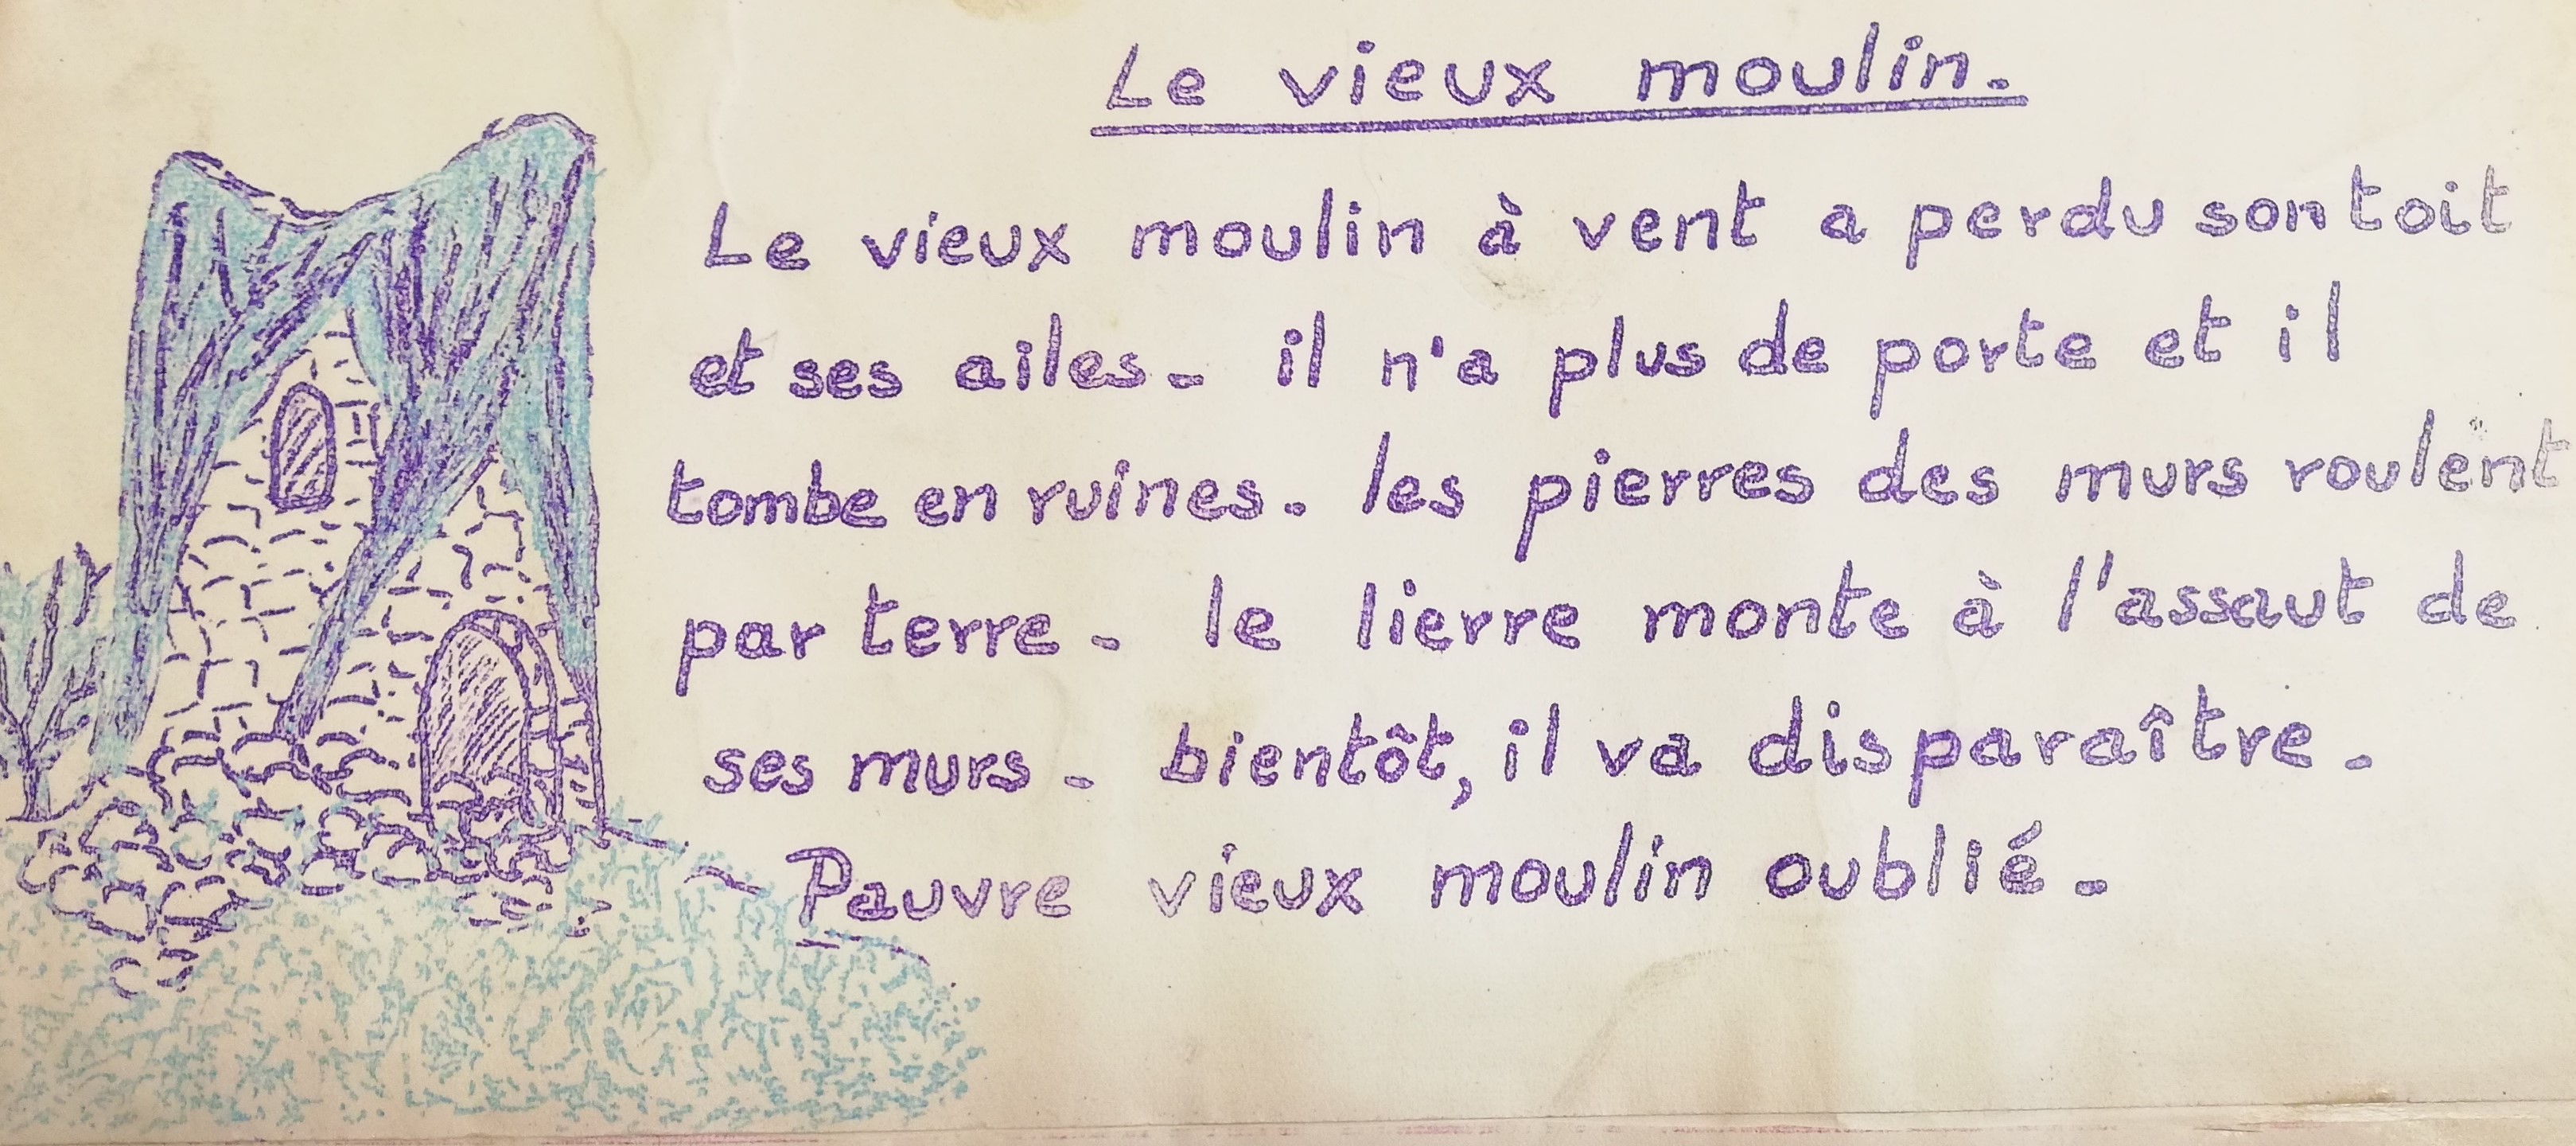 Le vieux moulin.
Le vieux moulin à vent a perdu son toit
et ses ailes - il n'a plus de porte et il
tombe en ruines - les pierres des murs roulent
par terre - le lierre monte à l'assaut de
ses murs - bientôt, il va disparaître -
Pauvre vieux moulin oublié -